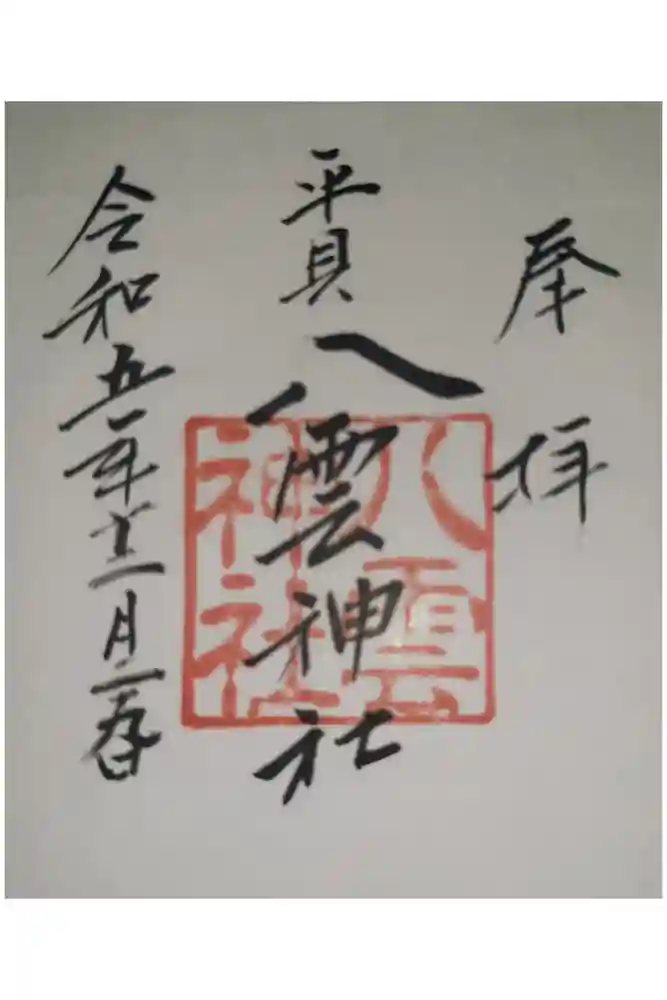 奉拝
平貝
八雲神社
八雲
神社
令和五年十二月二日